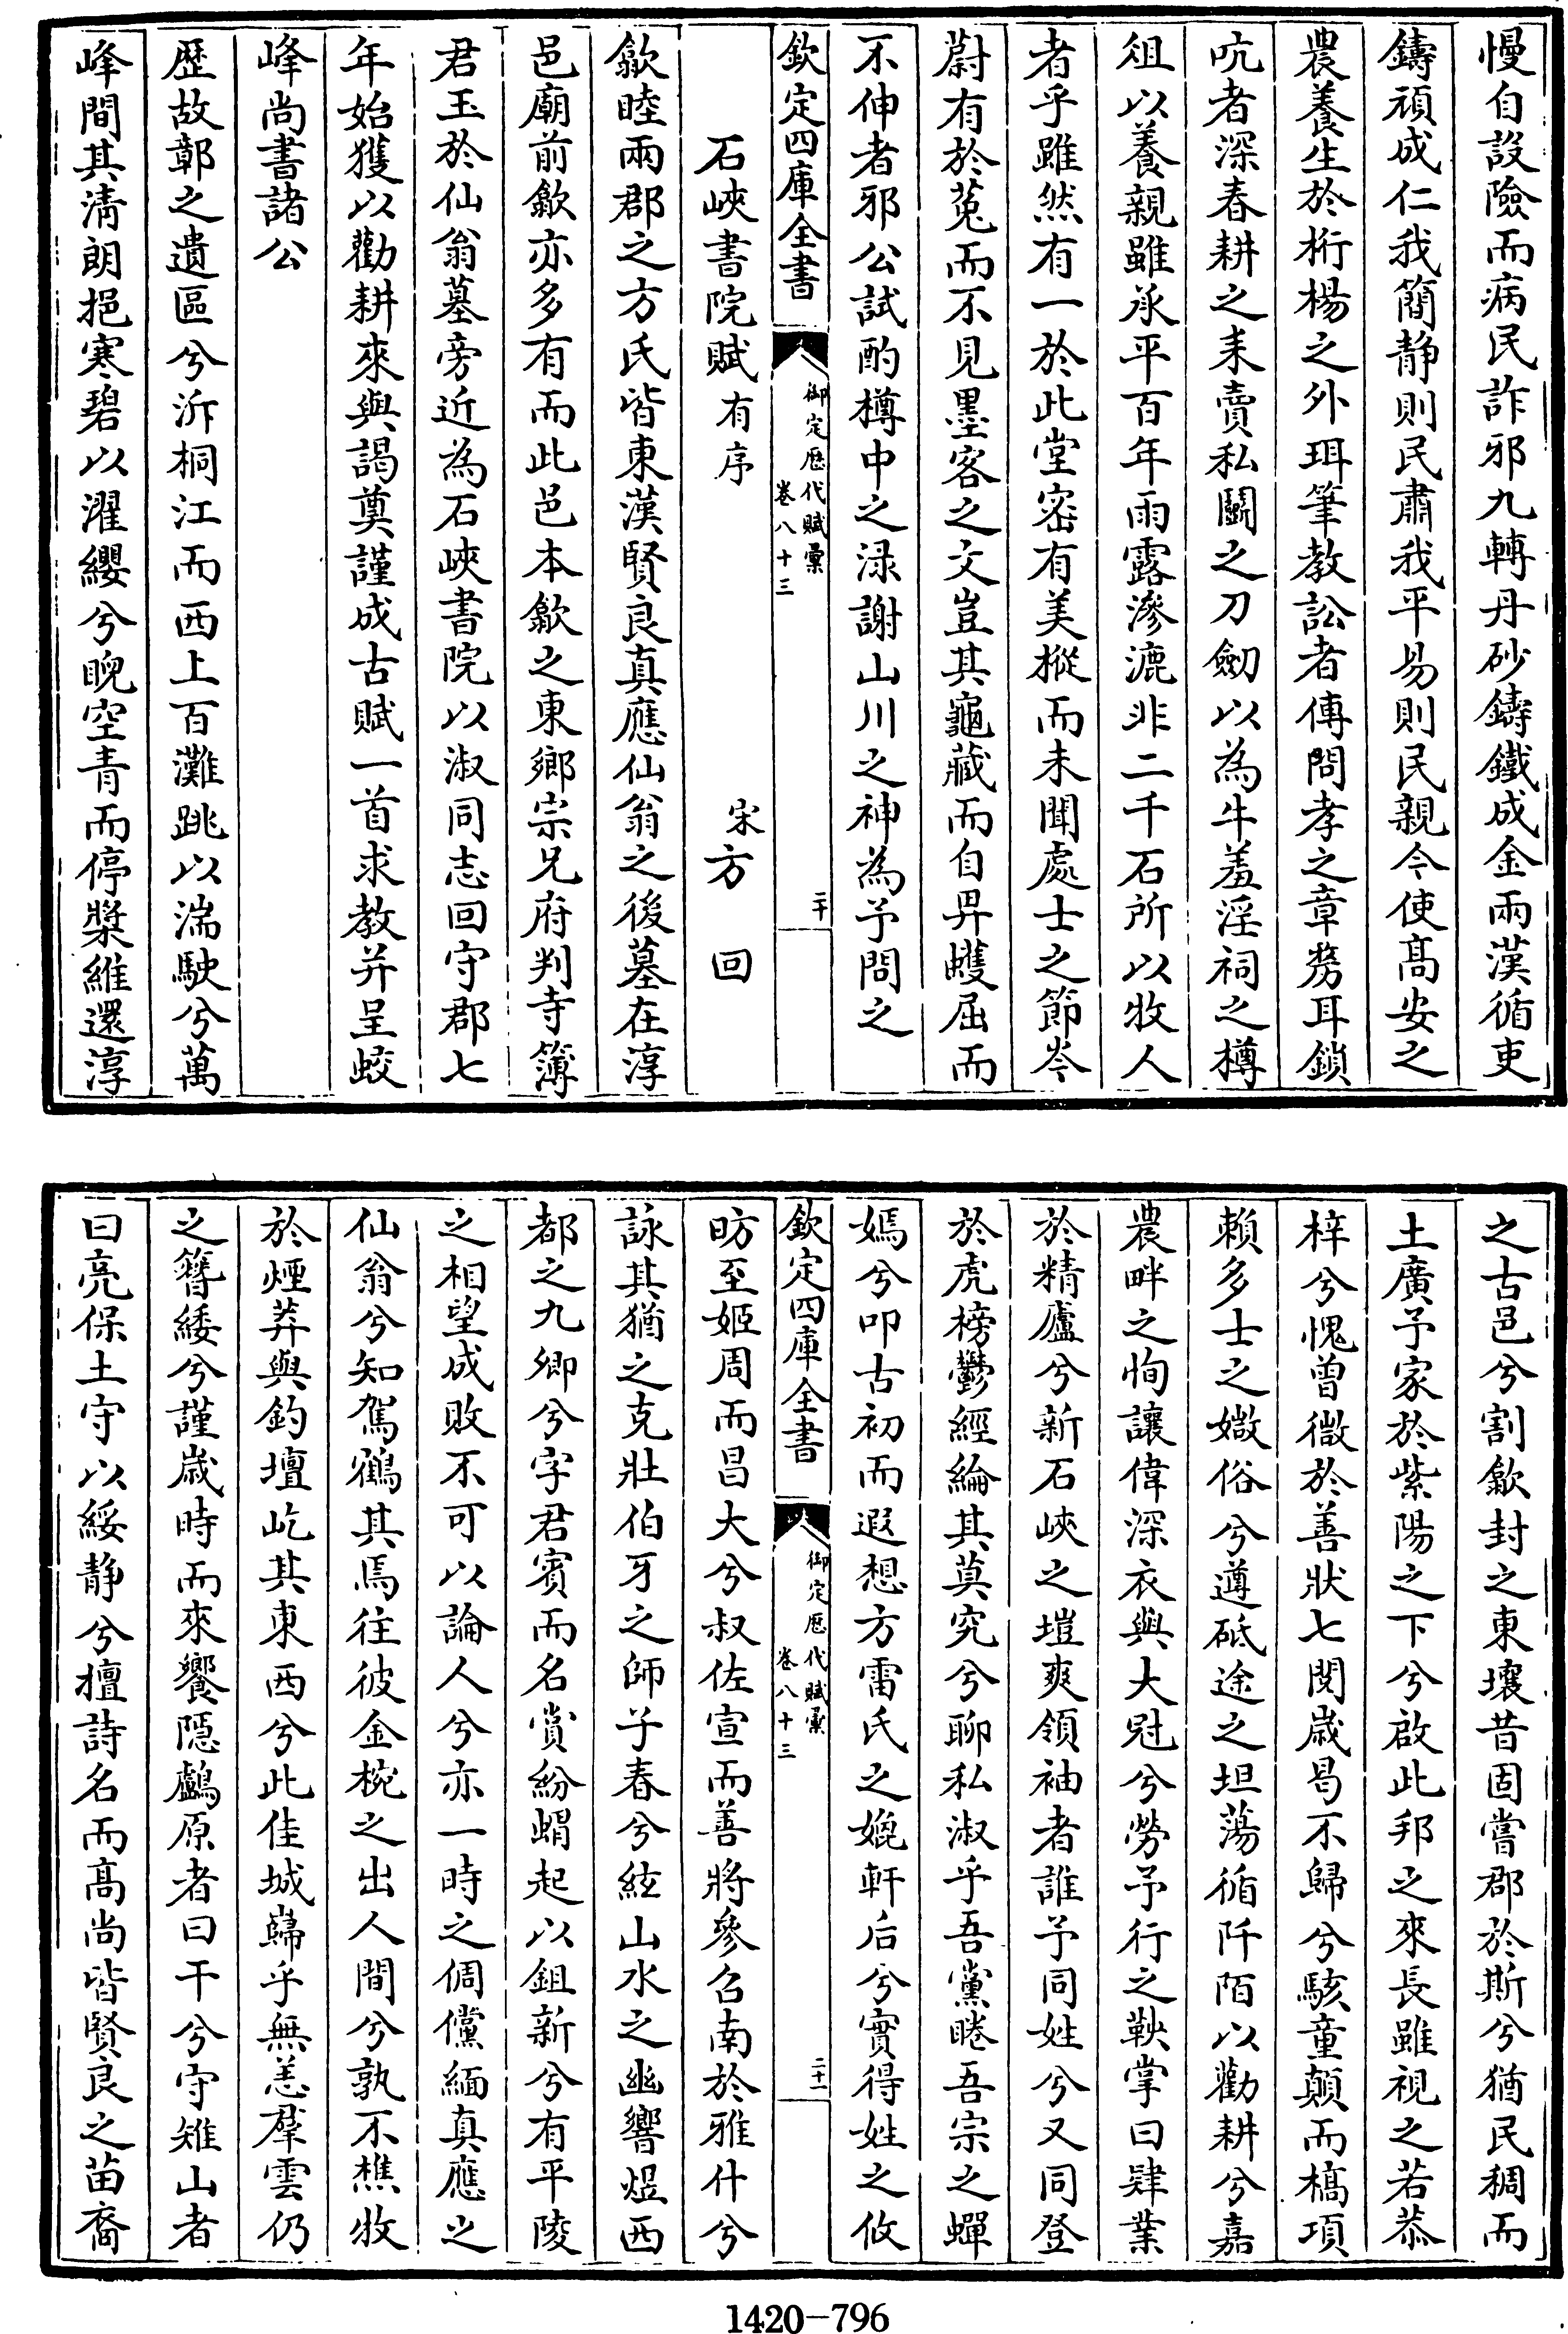 慢自設險而病民詐邪九轉丹砂鑄鐵成金兩漢循吏
鑄頑成仁我簡静則民肅我平易則民親今使髙安之
農養生於桁楊之外珥筆教訟者傳問孝之章剺耳鎖
吭者深春耕之耒賣私鬭之刀劒以為牛羞淫祠之樽
俎以養親雖承平百年雨露滲漉非二千石所以牧人
者乎雖然有一於此堂密有美樅而未聞處士之節岑
蔚有於菟而不見墨客之文豈其龜藏而自畀蠖屈而
不伸者邪公試酌樽中之渌謝山川之神為予問之
欽定四庫全書
御定歴代賦彙
卷八十三
二十
石峽書院賦有序
宋方回
歙睦兩郡之方氏皆東漢賢良真應仙翁之後墓在淳
邑廟前歙亦多有而此邑本歙之東鄉宗兄府判寺簿
君玉於仙翁墓旁近為石峽書院以淑同志回守郡七
年始獲以勸耕來與謁奠謹成古賦一首求教并呈蛟
峰尚書諸公
歴故鄣之遺區兮泝桐江而西上百灘跳以湍駛兮萬
峰間其清朗挹寒碧以濯纓兮睨空青而停槳維還淳
之古邑兮割歙封之東壤昔固嘗郡於斯兮猶民稠而
土廣予家於紫陽之下兮啟此邦之來長雖視之若恭
梓兮愧曾微於善狀七閱歲曷不歸兮駭童顛而槁項
賴多士之媺俗兮遵砥途之坦蕩循阡陌以勸耕兮嘉
農畔之恂讓偉深衣與大冠兮勞予行之鞅掌曰肄業
於精廬兮新石峽之塏爽領袖者誰予同姓兮又同登
於虎榜鬱經綸其莫究兮聊私淑乎吾黨睠吾宗之蟬
嫣兮叩古初而遐想方雷氏之媲軒后兮實得姓之攸
欽定四庫全書
御定歴代賦彙
卷八十三
二十一
昉至姬周而昌大兮叔佐宣而善將參召南於雅什兮
詠其猶之克壯伯牙之師子春兮絃山水之幽響煜西
都之九卿兮字君賓而名賞紛蝟起以鉏新兮有平陵
之相望成敗不可以論人兮亦一時之倜儻緬真應之
仙翁兮知駕鶴其焉往彼金椀之出人間兮孰不樵牧
於煙莽與釣壇屹其東西兮此佳城巋乎無恙羣雲仍
之簪緌兮謹歲時而來饗隠鸕原者曰干兮守雉山者
曰亮保土守以綏静兮擅詩名而髙尚皆賢良之苗裔
1420-796